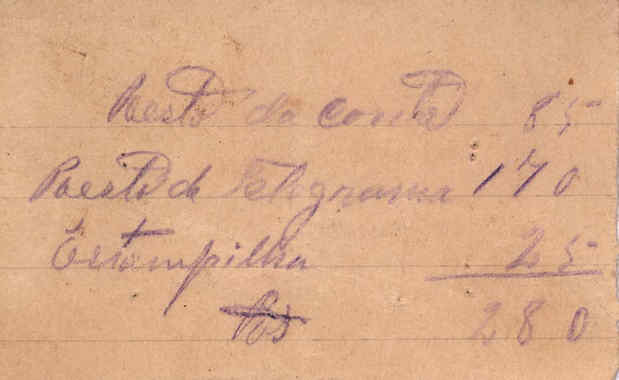 Resto da conta 85
Resto do Telegrama 170
Estampilha 25
280